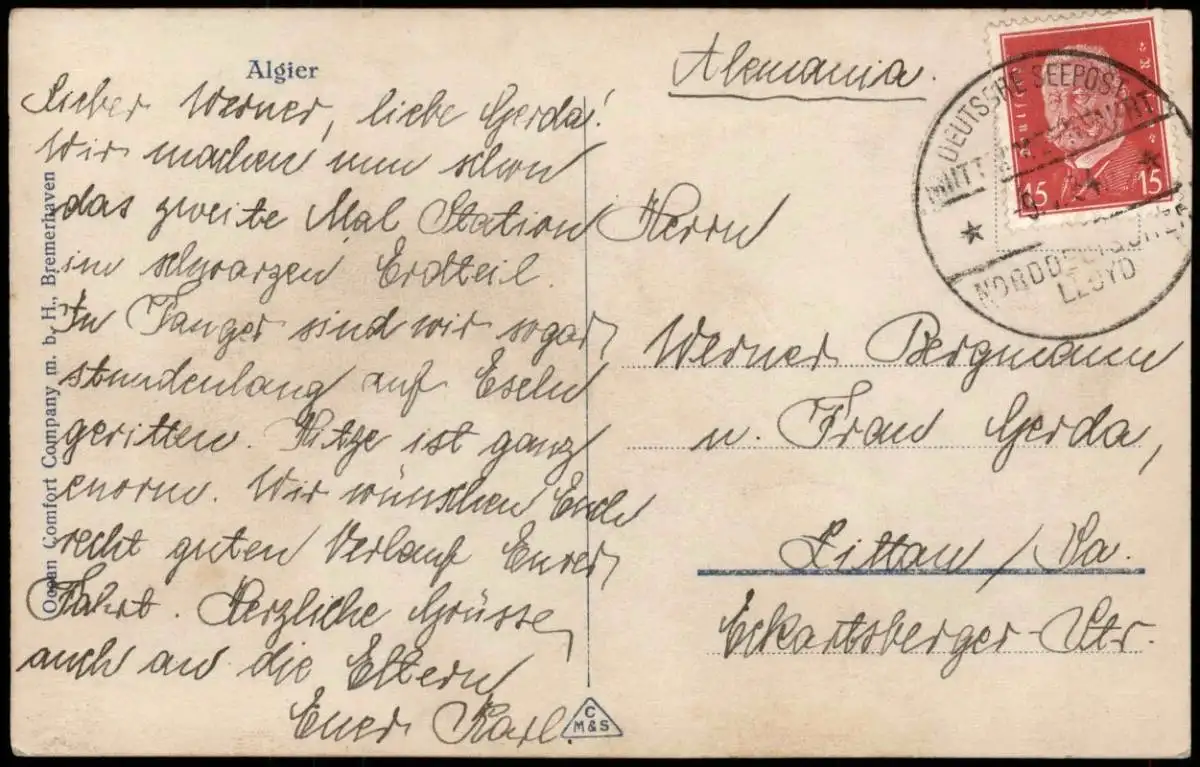 Algier
Lieber Werner, liebe Gerda!
Wir machen nun schon
das zweite Mal Station
im schwarzen Erdteil.
In Tanger sind wir sogar
stundenlang auf Eseln
geritten. Hitze ist ganz
enorm. Wir wünschen Euch
recht guten Verlauf Eurer
Fahrt. Herzliche Grüsse,
auch an die Eltern
Euer Karl.
Ocean Comfort Company m. b. H., Bremerhaven
C
M&S
Alemania.
Herrn
Werner Bergmann
u. Frau Gerda,
Zittau / Sa.
Eckartsberger-Str.
DEUTSCHE SEEPOST
NORDDEUTSCHER
LLOYD
15
15